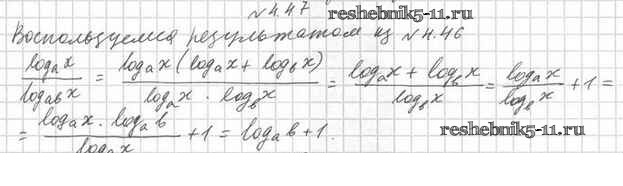 №4.47 reshebnik5-11.ru
Воспользуемся результатом из №4.46
log_a x / log_ab x = log_a x (log_a x + log_b x) / (log_a x · log_b x) = (log_a x + log_b x) / log_b x = log_a x / log_b x + 1 =
= log_a x · log_a b / log_a x + 1 = log_a b + 1. reshebnik5-11.ru